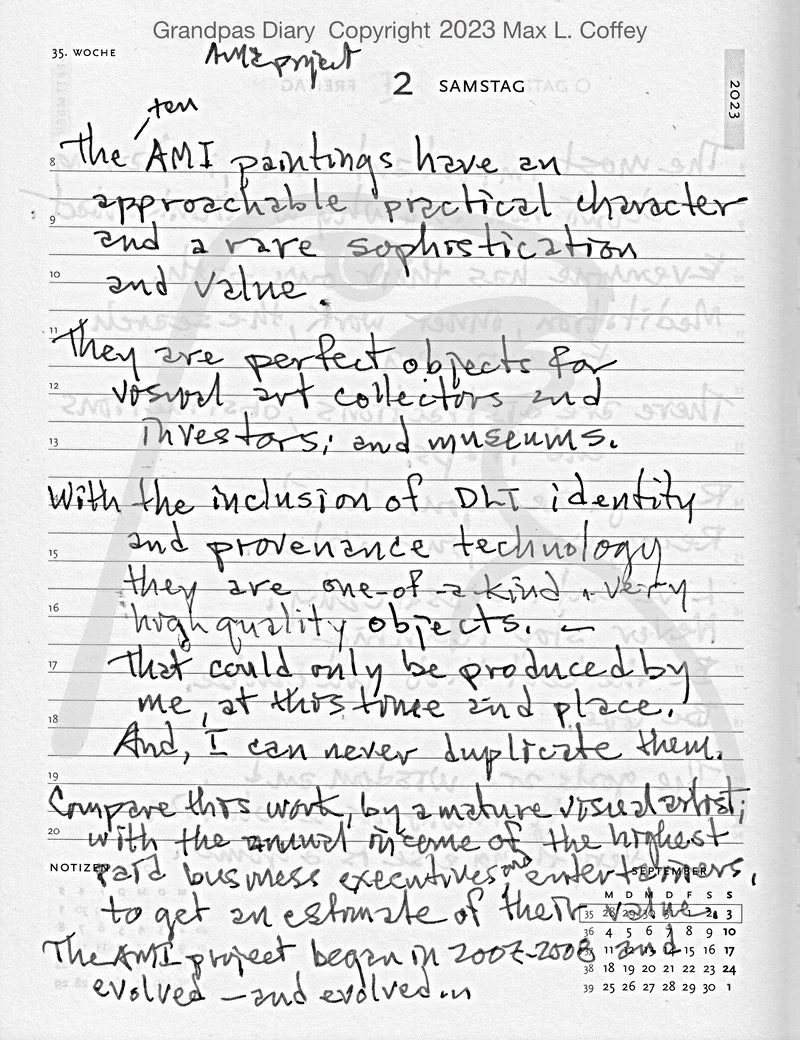 Grandpas Diary Copyright 2023 Max L. Coffey
35. WOCHE
AMI project
2 SAMSTAG
2023
ten
8 The AMI paintings have an
approachable practical character
9
and a rare sophistication
10 and value.
11 They are perfect objects for
12 visual art collectors and
13 investors; and museums.
With the inclusion of DLT identity
15 and provenance technology
they are one-of-a-kind, very
16 high quality objects. —
17 That could only be produced by
me, at this time and place.
18 And, I can never duplicate them.
19
Compare this work, by a mature visual artist;
20 with the annual income of the highest
NOTIZEN
SEPTEMBER
paid business executives and entertainers,
to get an estimate of their value.
M D M D F S S
35 28 29 30 31 1 2 3
36 4 5 6 7 8 9 10
37 11 12 13 14 15 16 17
38 18 19 20 21 22 23 24
39 25 26 27 28 29 30 1
The AMI project began in 2007-2008 and
evolved — and evolved in